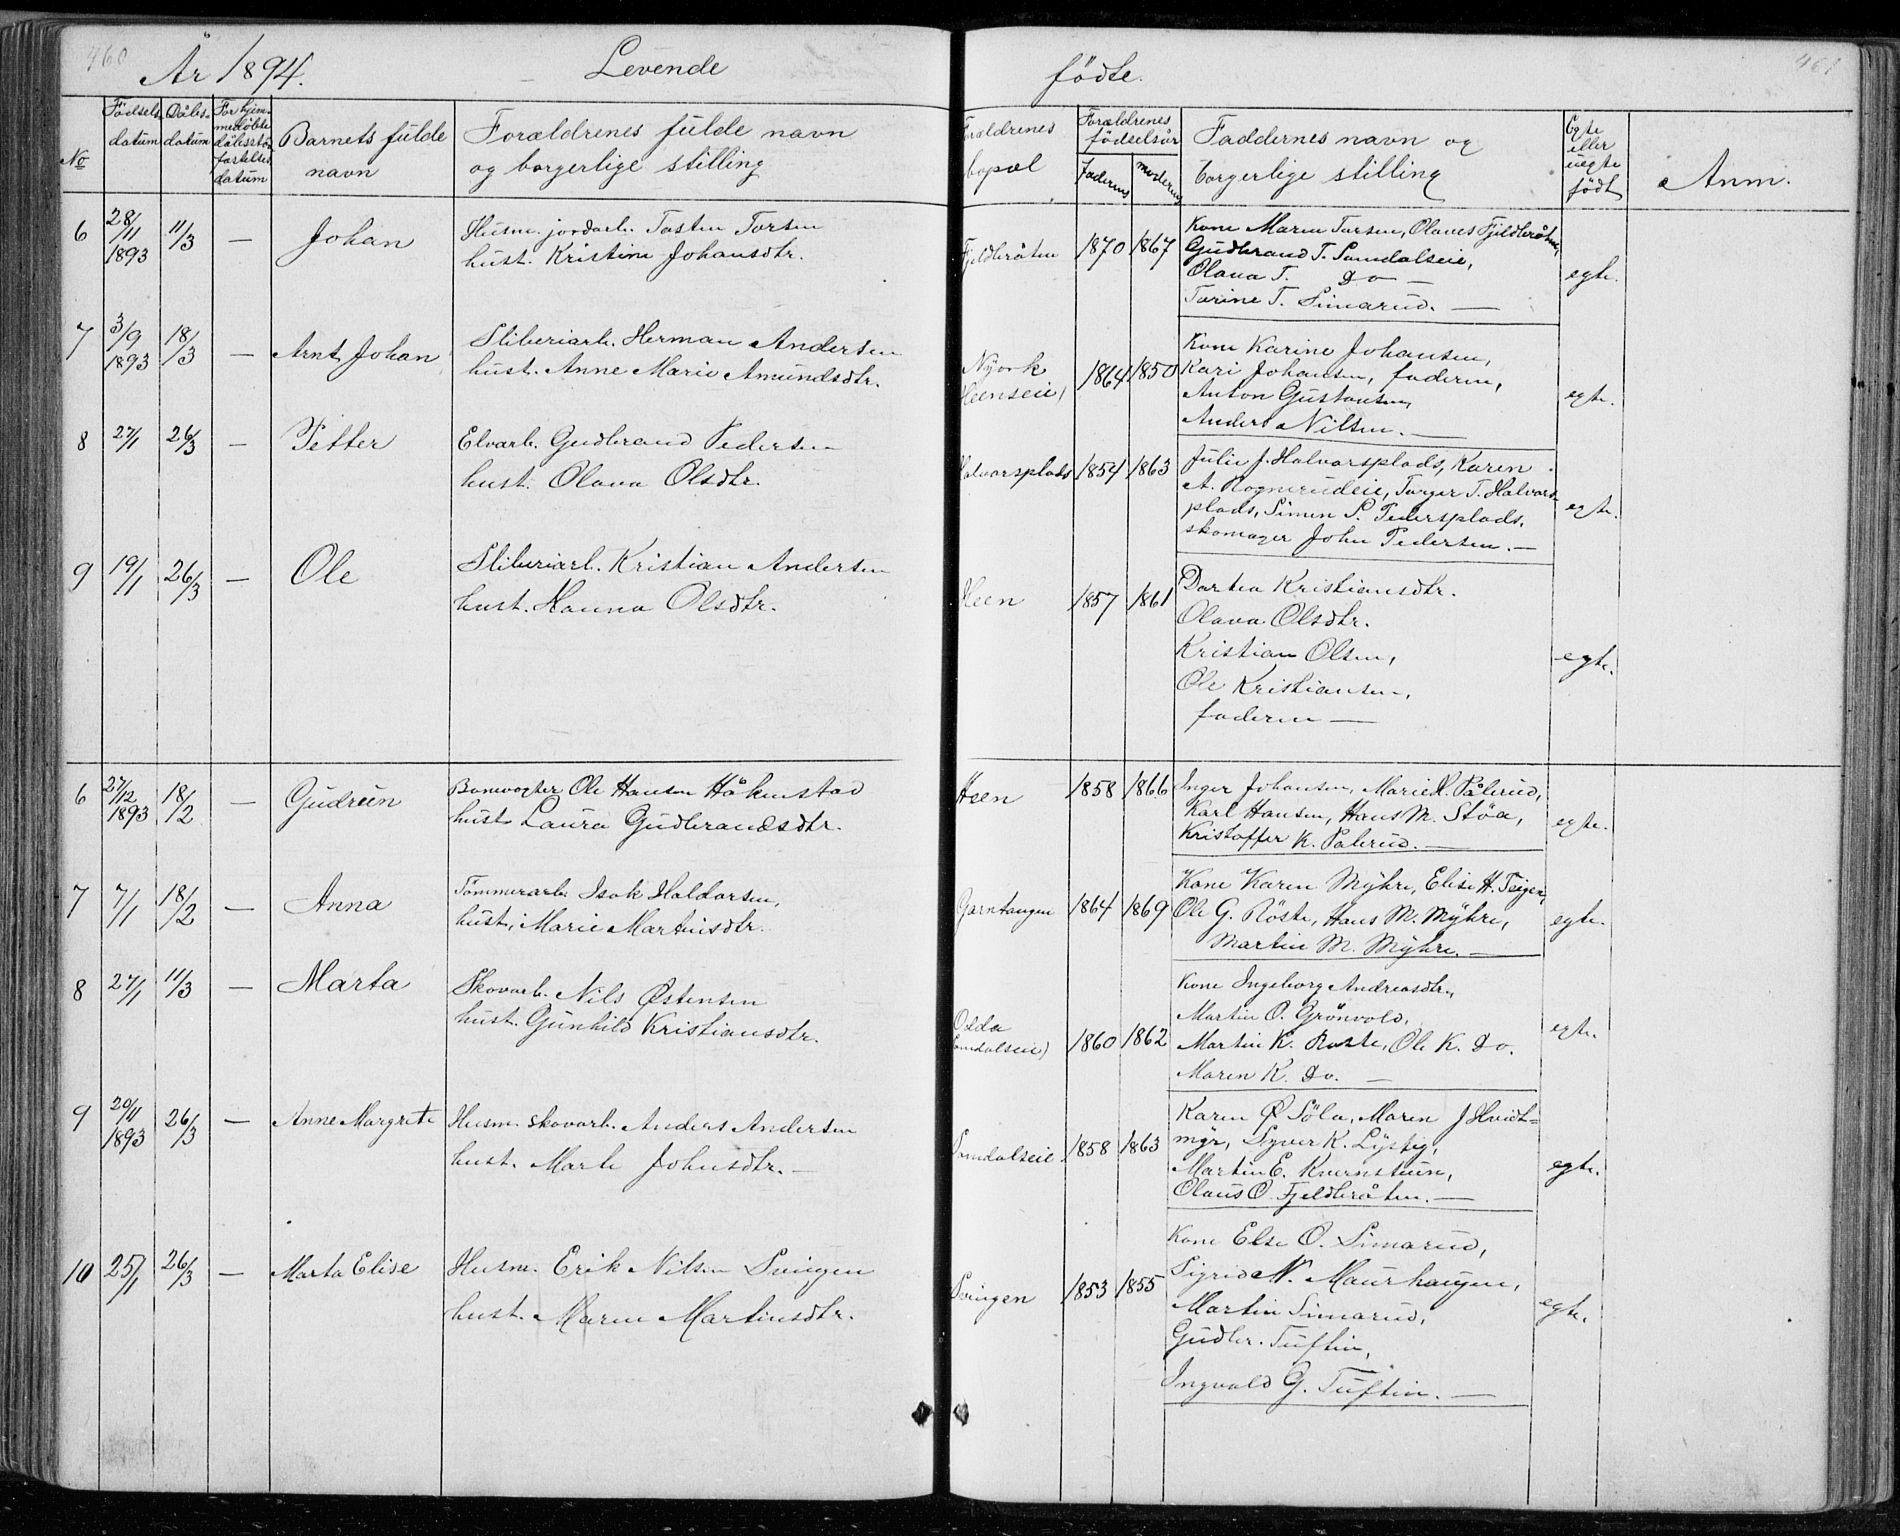 460
År 1894.
Levende
fødte.
461
No
Fødsels datum
Dåbs- datum
For hjemmedøbte dåbsstadfæstelses datum
Barnets fulde navn
Forældrenes fulde navn og borgerlige stilling
Forældrenes bopæl
Forældrenes fødselsår
Faderens
Moderens
Faddernes navn og borgerlige stilling
Egte eller uegte født
Anm.
6 28/11 1893 11/3 — Johan
Husm. jordarb. Tosten Torsen
hust. Kristine Johansdtr.
Fjeldbråten 1870 1867
Kone Maren Torsen, Olaves Fjeldbråten,
Gudbrand T. Somdalseie,
Olava T. Do —
Torine T. Simarud. —
egte.
7 3/9 1893 18/3 — Arnt Johan
Sliberiarb. Herman Andersen
hust. Anne Marie Amundsdtr.
Nyork
Heenseie)
1864 1850
Kone Karine Johansen,
Kari Johansen, faderen,
Anton Gustavsen,
Anders Nilsen. —
egte.
8 27/1 26/3 — Petter
Elvarb. Gudbrand Pedersen
hust. Olava Olsdtr.
Halvorsplads 1854 1863
Julie J. Halvorsplads, Karen
A. Rognerudeie, Torger T. Halvors-
plads, Simen S. Pedersplads,
skomager John Pedersen. —
egte.
9 19/1 26/3 — Ole
Sliberiarb. Kristian Andersen
hust. Hanna Olsdtr.
Heen 1857 1861
Dortea Kristiansdtr.
Olava Olsdtr.
Kristian Olsen,
Ole Kristiansen,
faderen —
egte.
6 27/12 1893 18/2 — Gudrun
Banevogter Ole Hansen Håkenstad
hust. Laura Gudbrandsdtr.
Heen 1858 1866
Inger Johansen, Marie K. Pålerud,
Karl Hansen, Hans M. Støa,
Kristoffer K. Palerud. —
egte.
7 7/1 18/2 — Anna
Tømmerarb. Isak Haldorsen,
hust. Marie Martinsdtr.
Garntangen 1864 1869
Kone Karen Myhre, Elise H. Teigen,
Ole G. Røste, Hans M. Myhre,
Martin M. Myhre. —
egte.
8 27/1 11/3 — Marta
Skovarb. Nils Østensen
hust. Gunhild Kristiansdtr.
Somdalseie) 1860 1862
Kone Ingeborg Andreasdtr,
Martin O. Grønvold,
Martin K. Røste, Ole K. Do.
Maren K. Do. —
egte.
9 20/11 1893 26/3 — Anne Margrete
Husm. skovarb. Anders Andersen
hust. Marte Johnsdtr. —
Somdalseie 1858 1863
Karen Ø Søla, Maren J Hvidt-
myr, Syver K. Lysby,
Martin E. Kvernstuen,
Olaus O. Fjeldbråten. —
egte.
10 25/1 26/3 — Marta Elise
Husm. Erik Nilsen Svingen
hust. Maren Martinsdtr.
Svingen 1853 1855
Kone Else O. Simarud,
Sigrid N. Maurhaugen,
Martin Simarud,
Gudbr. Tuftin,
Ingvald G. Tuftin. —
egte.